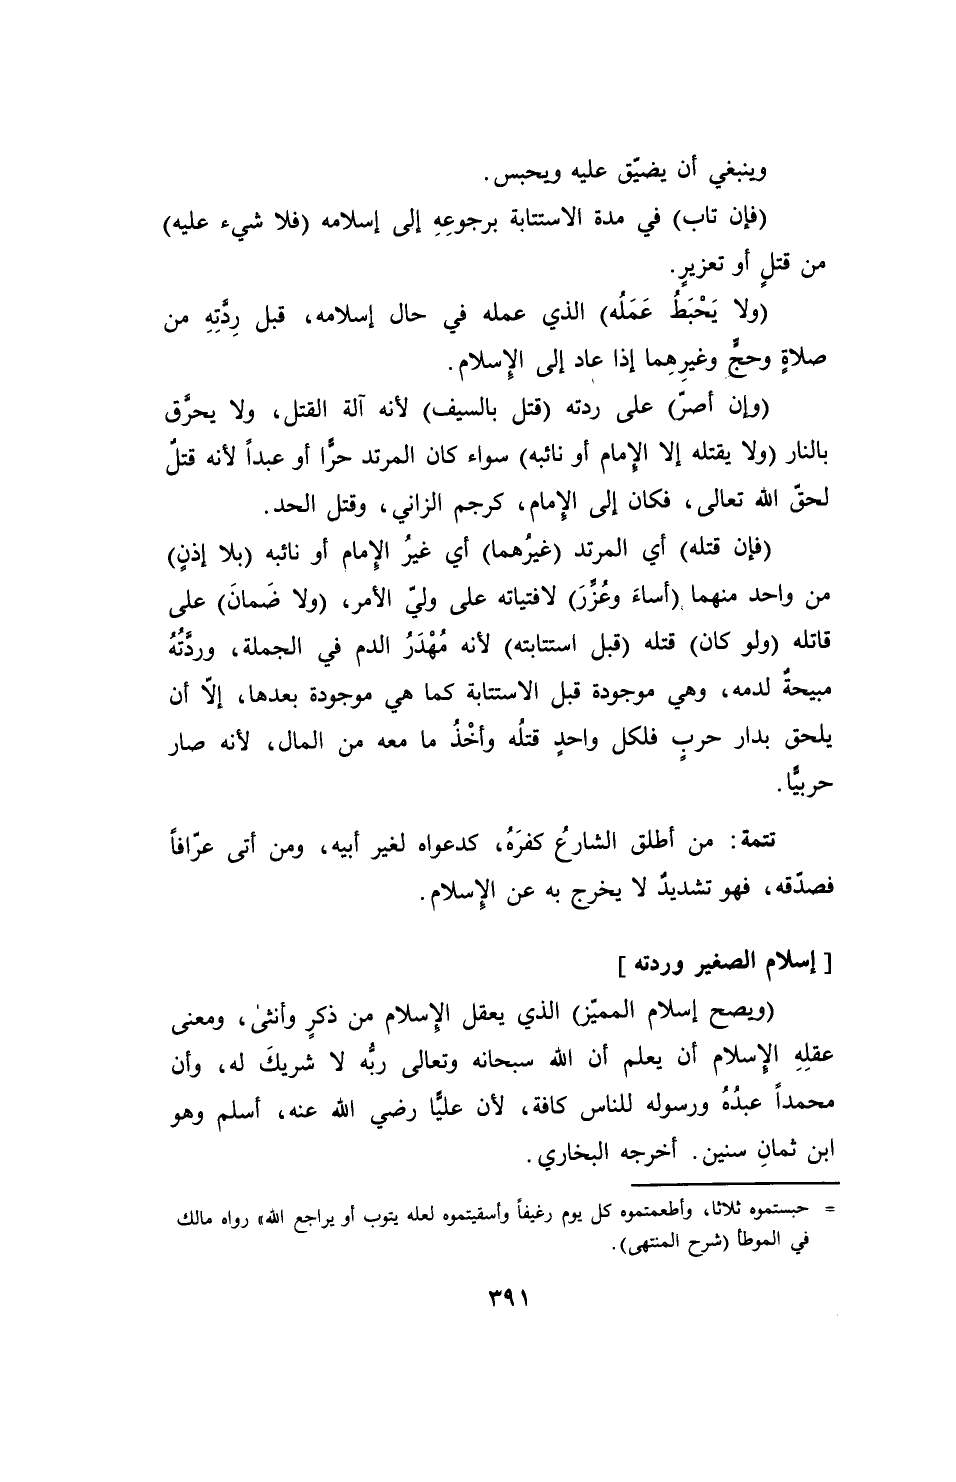 وينبغي أن يضيّق عليه ويحبس.
(فإن تاب) في مدة الاستتابة برجوعِهِ إلى إسلامه (فلا شيء عليه)
من قتلٍ أو تعزيرٍ.
(ولا يَحْبَطُ عَمَلُه) الذي عمله في حال إسلامه، قبل رِدَّتِهِ من
صلاةٍ وحجٍّ وغيرِهِما إذا عاد إلى الإِسلام.
(وإن أصرّ) على ردته (قتل بالسيف) لأنه آلة القتل، ولا يحرَّق
بالنار (ولا يقتله إلا الإِمام أو نائبه) سواء كان المرتد حرًّا أو عبداً لأنه قتلٌ
لحقّ الله تعالى، فكان إلى الإِمام، كرجم الزاني، وقتل الحد.
(فإن قتله) أي المرتد (غيرُهما) أي غيرُ الإِمام أو نائبه (بلا إذنٍ)
من واحد منهما (أساءَ وعُزِّرَ) لافتياته على وليّ الأمر، (ولا ضَمانَ) على
قاتله (ولو كان) قتله (قبل استتابته) لأنه مُهْدَرُ الدم في الجملة، وردَّتُهُ
مبيحةٌ لدمه، وهي موجودة قبل الاستتابة كما هي موجودة بعدها، إلّا أن
يلحق بدار حربٍ فلكل واحدٍ قتلُه وأخْذُ ما معه من المال، لأنه صار
حربيًّا.
تتمة: من أطلق الشارعُ كفرَهُ، كدعواه لغير أبيه، ومن أتى عرّافاً
فصدّقه، فهو تشديدٌ لا يخرج به عن الإِسلام.
[إسلام الصغير وردته]
(ويصح إسلام المميّز) الذي يعقل الإِسلام من ذكرٍ وأنثىٰ، ومعنى
عقلِهِ الإِسلام أن يعلم أن الله سبحانه وتعالى ربُّه لا شريكَ له، وأن
محمداً عبدُهُ ورسوله للناس كافة، لأن عليًّا رضي الله عنه، أسلم وهو
ابن ثمانِ سنين. أخرجه البخاري.
= حبستموه ثلاثا، وأطعمتموه كل يوم رغيفاً وأسقيتموه لعله يتوب أو يراجع الله» رواه مالك
في الموطأ (شرح المنتهى).
٣٩١